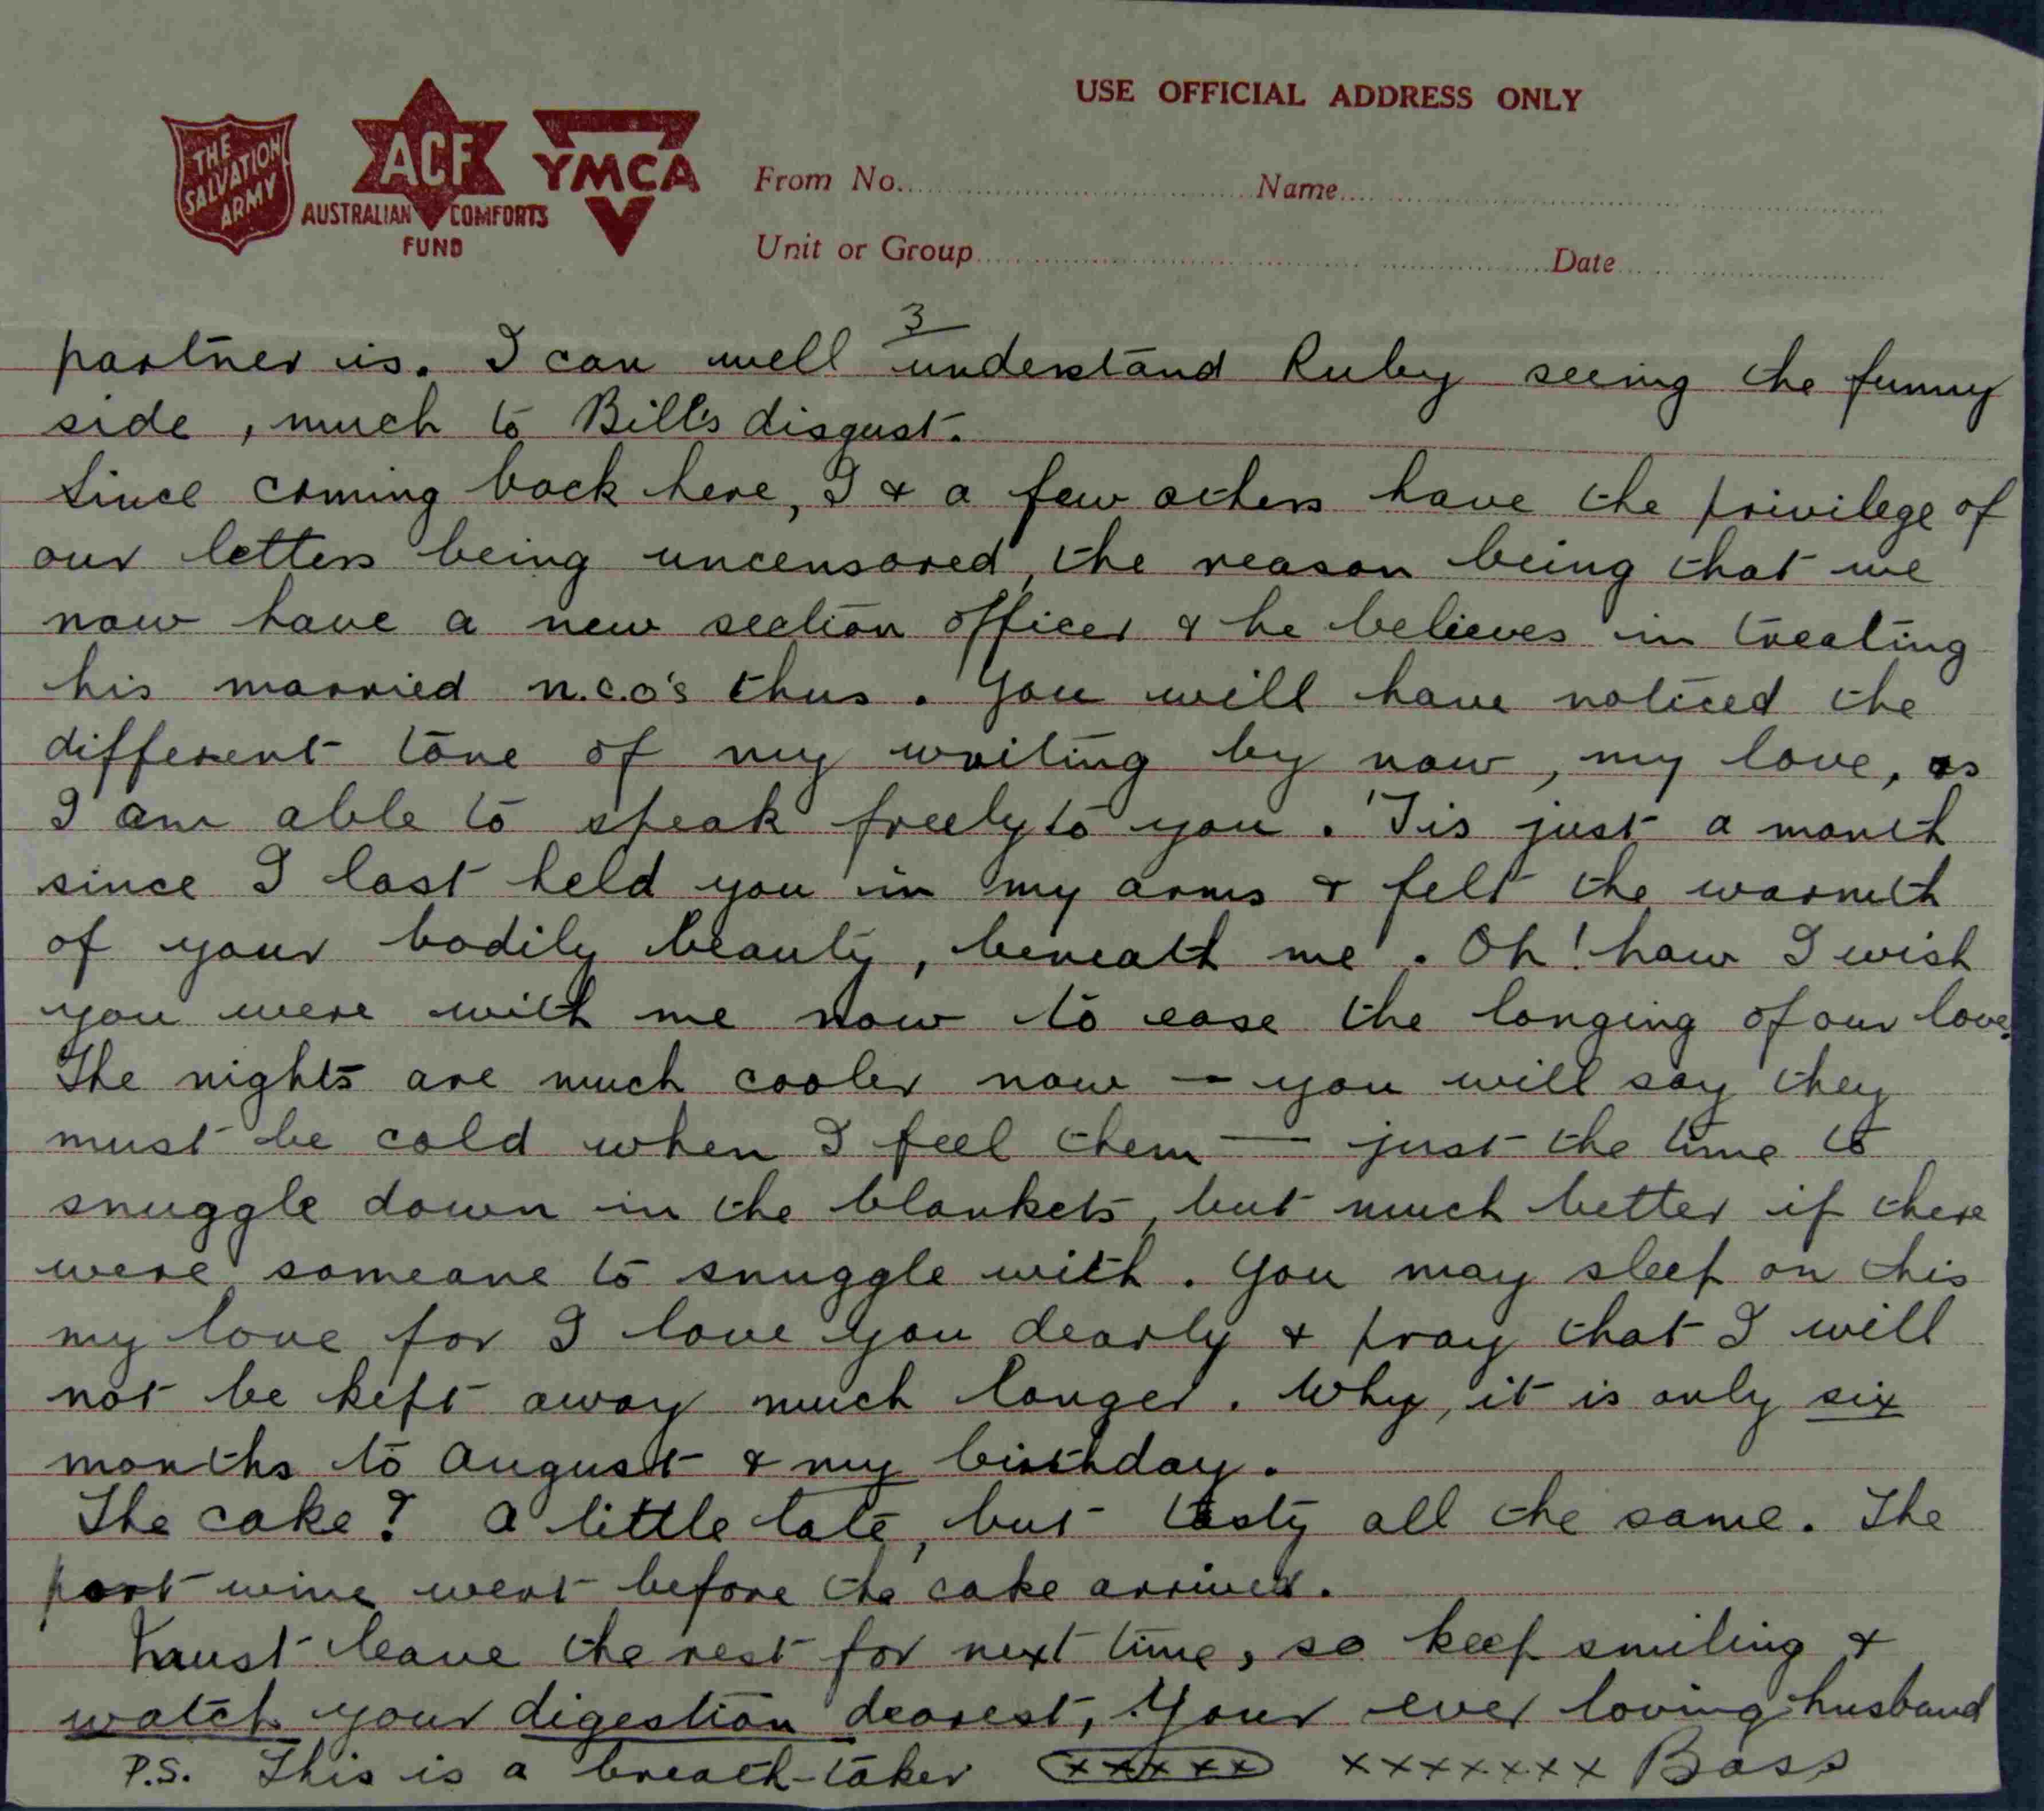 USE OFFICIAL ADDRESS ONLY
THE SALVATION ARMY
ACF
AUSTRALIAN COMFORTS FUND
YMCA
From No. Name
Unit or Group Date
3
partner is. I can well understand Ruby seeing the funny
side, much to Bill's disgust.
Since coming back here, I & a few others have the privilege of
our letters being uncensored, the reason being that we
now have a new section officer & he believes in treating
his married n.c.o's thus. You will have noticed the
different tone of my writing by now, my love, as
I am able to speak freely to you. 'Tis just a month
since I last held you in my arms & felt the warmth
of your bodily beauty, beneath me. Oh! how I wish
you were with me now to ease the longing of our love.
The nights are much cooler now — you will say they
must be cold when I feel them — just the time to
snuggle down in the blankets, but much better if there
were someone to snuggle with. You may sleep on this
my love for I love you dearly & pray that I will
not be kept away much longer. Why, it is only six
months to August & my birthday.
The cake? A little late, but tasty all the same. The
port wine went before the cake arrived.
Must leave the rest for next time, so keep smiling &
watch your digestion dearest, Your ever loving husband
P.S. This is a breath-taker xxxxx xxxxxxx Boss